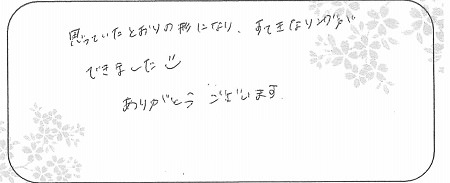 思っていたとおりの形になり、すてきなリングが
できました
ありがとうございます